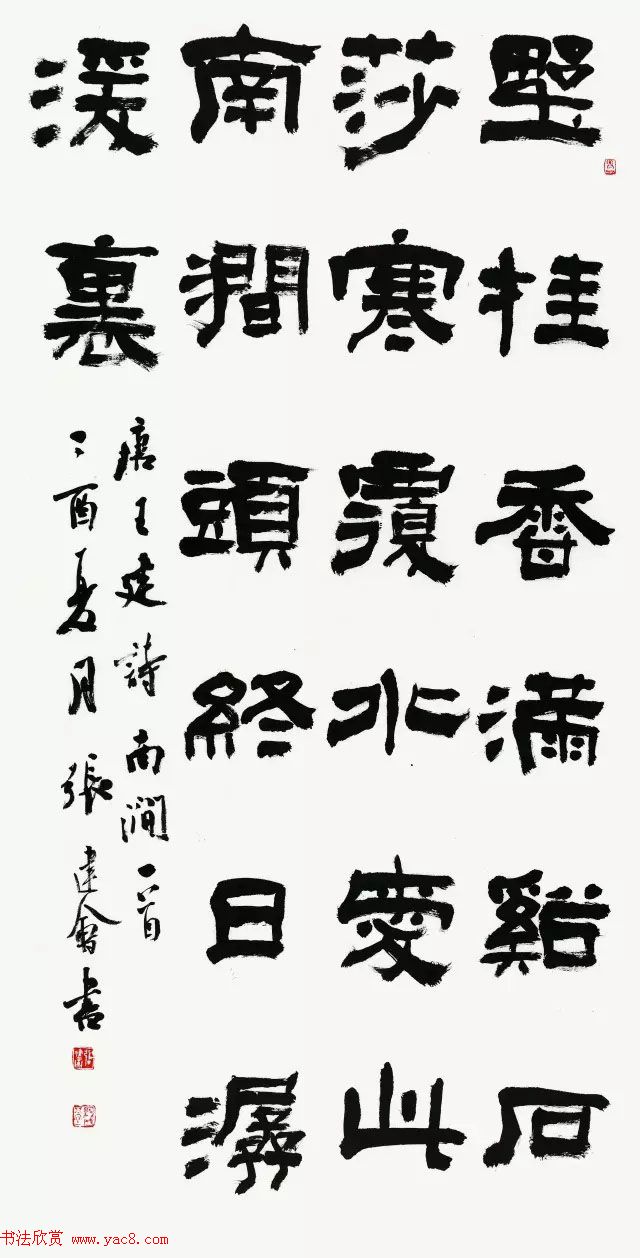 墅桂香滿谿石
莎寒覆水愛此
南澗頭終日潺
湲裏
唐王建詩南澗一首
丁酉夏月張建會書
书法欣赏 www.yac8.com